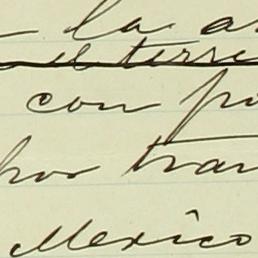 la
el terre
con po
hos tran
Mexico